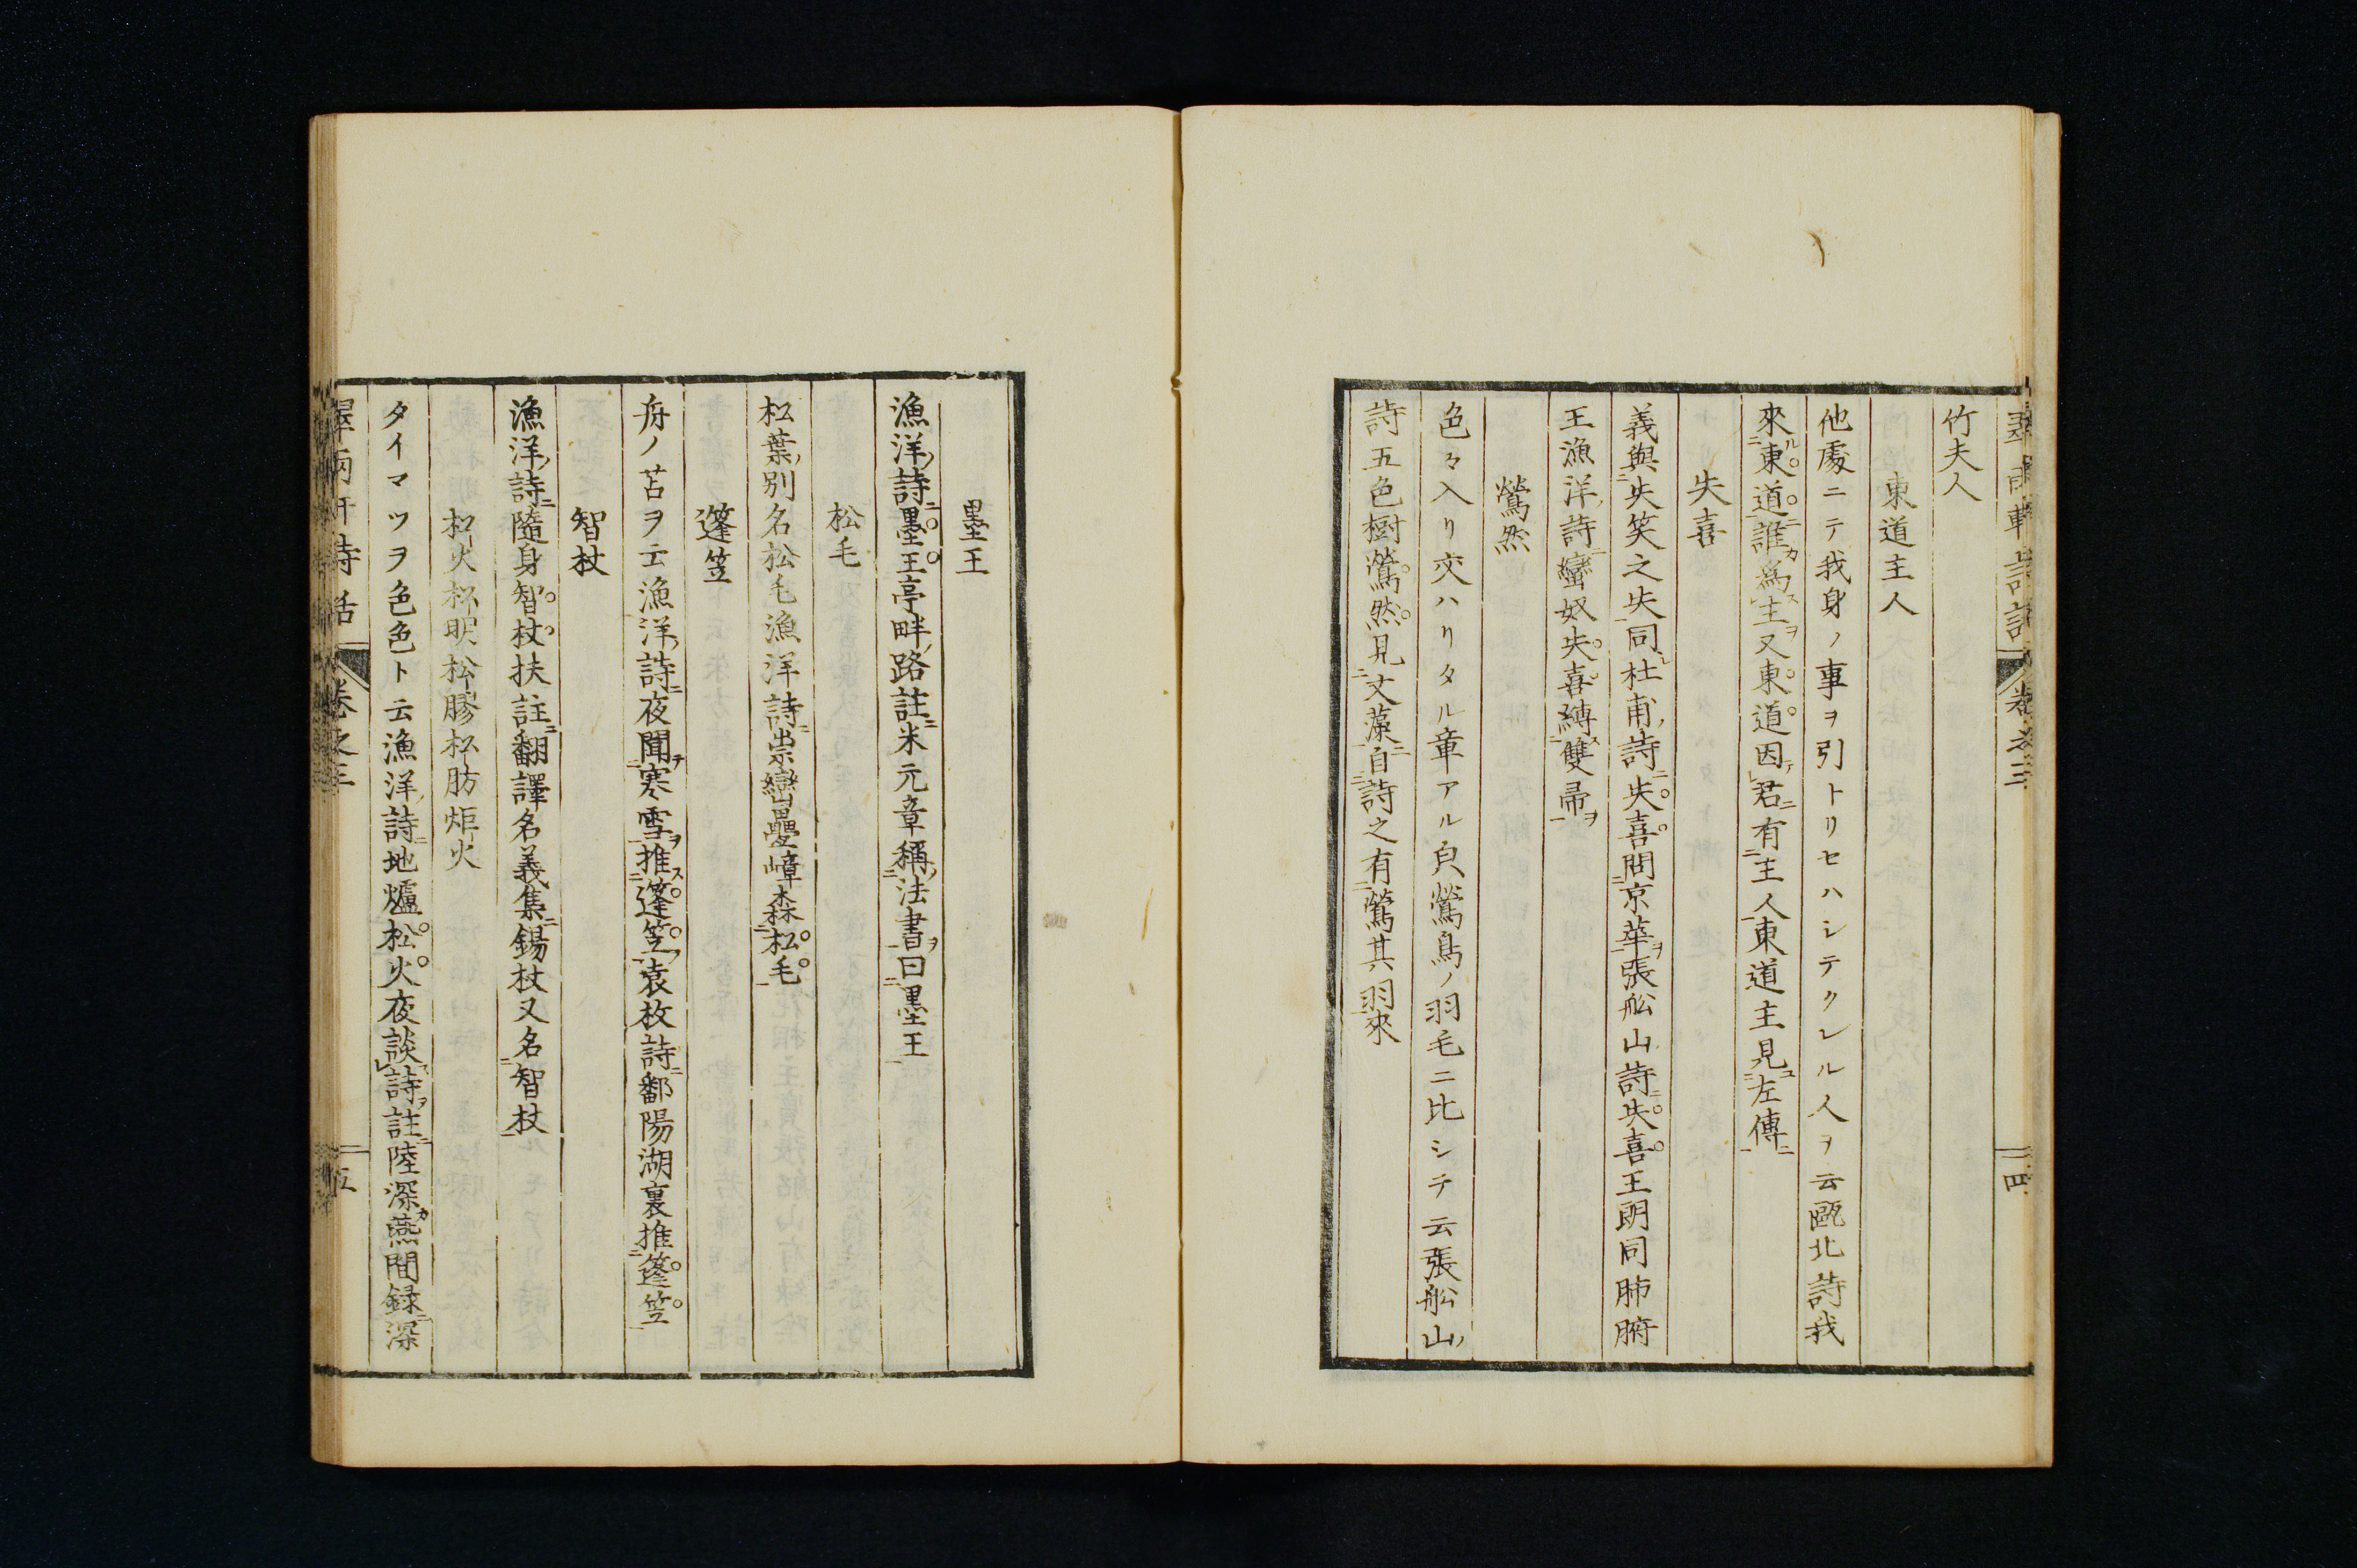 翠雨軒詩話 卷之三 四
竹夫人
東道主人
他處ニテ我身ノ事ヲ引トリセハシテクレル人ヲ云甌北詩我
來東道誰爲主又東道因君有主人東道主見左傳
失喜
義與失笑之失同杜甫詩失喜問京華張船山詩失喜王朗同肺腑
王漁洋詩蠻奴失喜縛雙帚
鶯然
色々入リ交ハリタル章アル皃鶯鳥ノ羽毛ニ比シテ云張船山
詩五色樹鶯然見文藻自詩之有鶯其羽來
墨王
漁洋詩墨王亭畔路註米元章稱法書曰墨王
松毛
松葉別名松毛漁洋詩崇巒疊嶂森松毛
篷笠
舟ノ苫ヲ云漁洋詩夜聞寒雪推篷笠袁枚詩鄱陽湖裏推篷笠
智杖
漁洋詩隨身智杖扶註翻譯名義集錫杖又名智杖
松火松明松膠松肪炬火
タイマツヲ色色ト云漁洋詩地爐松火夜談詩註陸深燕間録深
翠雨軒詩話 卷之三 五